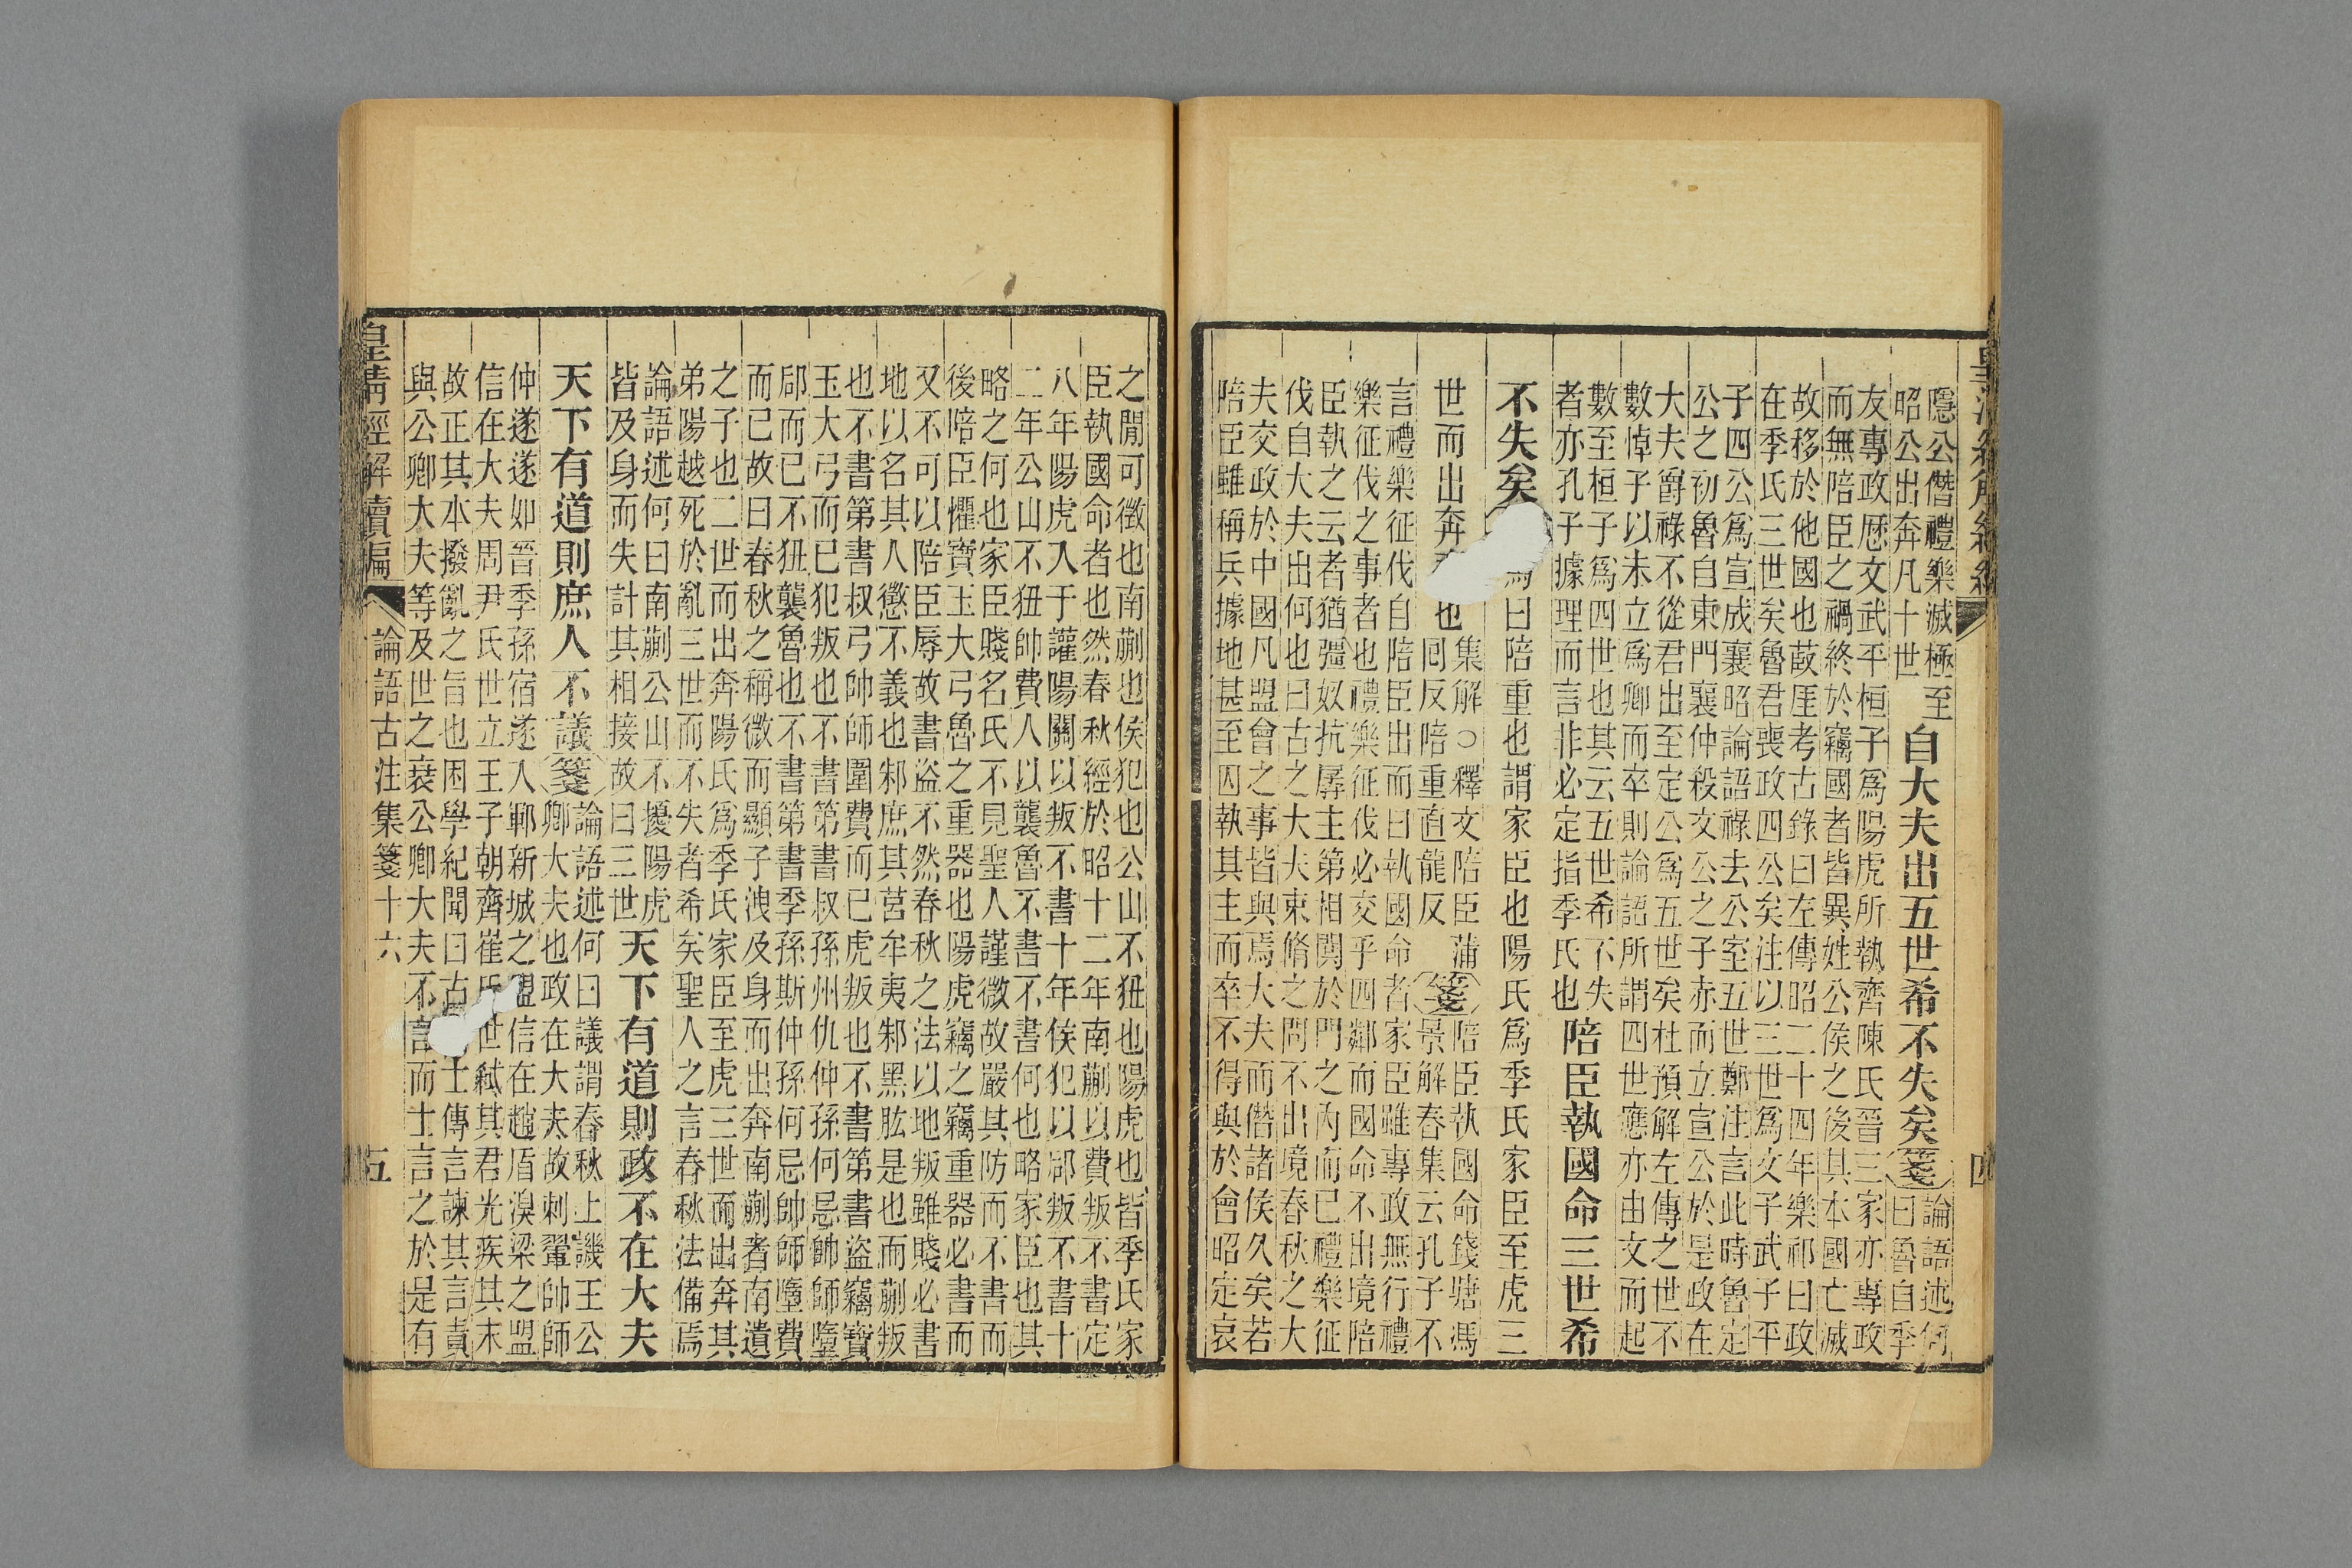 隱公僭禮樂滅極至
昭公出奔凡十世
自大夫出五世希不失矣
箋
論語述何
曰魯自季
友專政歷文武平桓子爲陽虎所執齊陳氏晉三家亦專政
而無陪臣之禍終於竊國者皆異姓公侯之後其本國亡滅
故移於他國也菣厓考古錄曰左傳昭二十四年樂祁曰政
在季氏三世矣魯君喪政四公矣注以三世爲文子武子平
子四公爲宣成襄昭論語祿去公室五世鄭注言此時魯定
公之初魯自東門襄仲殺文公之子赤而立宣公於是政在
大夫爵祿不從君出至定公爲五世矣杜預解左傳之世不
數悼子以未立爲卿而卒則論語所謂四世應亦由文而起
數至桓子爲四世也其云五世希不失
者亦孔子據理而言非必定指季氏也
陪臣執國命三世希
不失矣
爲曰陪重也謂家臣也陽氏爲季氏家臣至虎三
世而出奔 也
集解○釋文陪臣蒲
回反陪重直龍反
箋
陪臣執國命錢塘馮
景解春集云孔子不
言禮樂征伐自陪臣出而曰執國命者家臣雖專政無行禮
樂征伐之事者也禮樂征伐必交乎四鄰而國命不出境陪
臣執之云者猶彊奴抗孱主第相鬨於門之內而已禮樂征
伐自大夫出何也曰古之大夫束脩之問不出境春秋之大
夫交政於中國凡盟會之事皆與焉大夫而僭諸侯久矣若
陪臣雖稱兵據地甚至囚執其主而卒不得與於會昭定哀
之閒可徵也南蒯也侯犯也公山不狃也陽虎也皆季氏家
臣執國命者也然春秋經於昭十二年南蒯以費叛不書定
八年陽虎入于讙陽關以叛不書十年侯犯以郈叛不書十
二年公山不狃帥費人以襲魯不書不書何也略家臣也其
略之何也家臣賤名氏不見聖人謹微故嚴其防而不書而
後陪臣懼寶玉大弓魯之重器也陽虎竊之竊重器必書而
又不可以陪臣辱故書盜不然春秋之法以地叛雖賤必書
地以名其人懲不義也邾庶其莒牟夷邾黑肱是也而蒯叛
也不書第書叔弓帥師圍費而已虎叛也不書第書盜竊寶
玉大弓而已犯叛也不書第書叔孫州仇仲孫何忌帥師墮
郈而已不狃襲魯也不書第書季孫斯仲孫何忌帥師墮費
而已故曰春秋之稱微而顯子洩及身而出奔南蒯者南遺
之子也二世而出奔陽氏爲季氏家臣至虎三世而出奔其
弟陽越死於亂三世而不失者希矣聖人之言春秋法備焉
論語述何曰南蒯公山不擾陽虎
皆及身而失計其相接故曰三世
天下有道則政不在大夫
天下有道則庶人不議
箋
論語述何曰議謂春秋上譏王公
卿大夫也政在大夫故刺翬帥師
仲遂遂如晉季孫宿遂入鄆新城之盟信在趙盾溴梁之盟
信在大夫周尹氏世立王子朝齊崔氏世弑其君光疾其末
故正其本撥亂之旨也困學紀聞曰古 士傳言諫其言責
與公卿大夫等及世之衰公卿大夫不言而士言之於是有
皇清經解續編
論語古注集箋十六
五